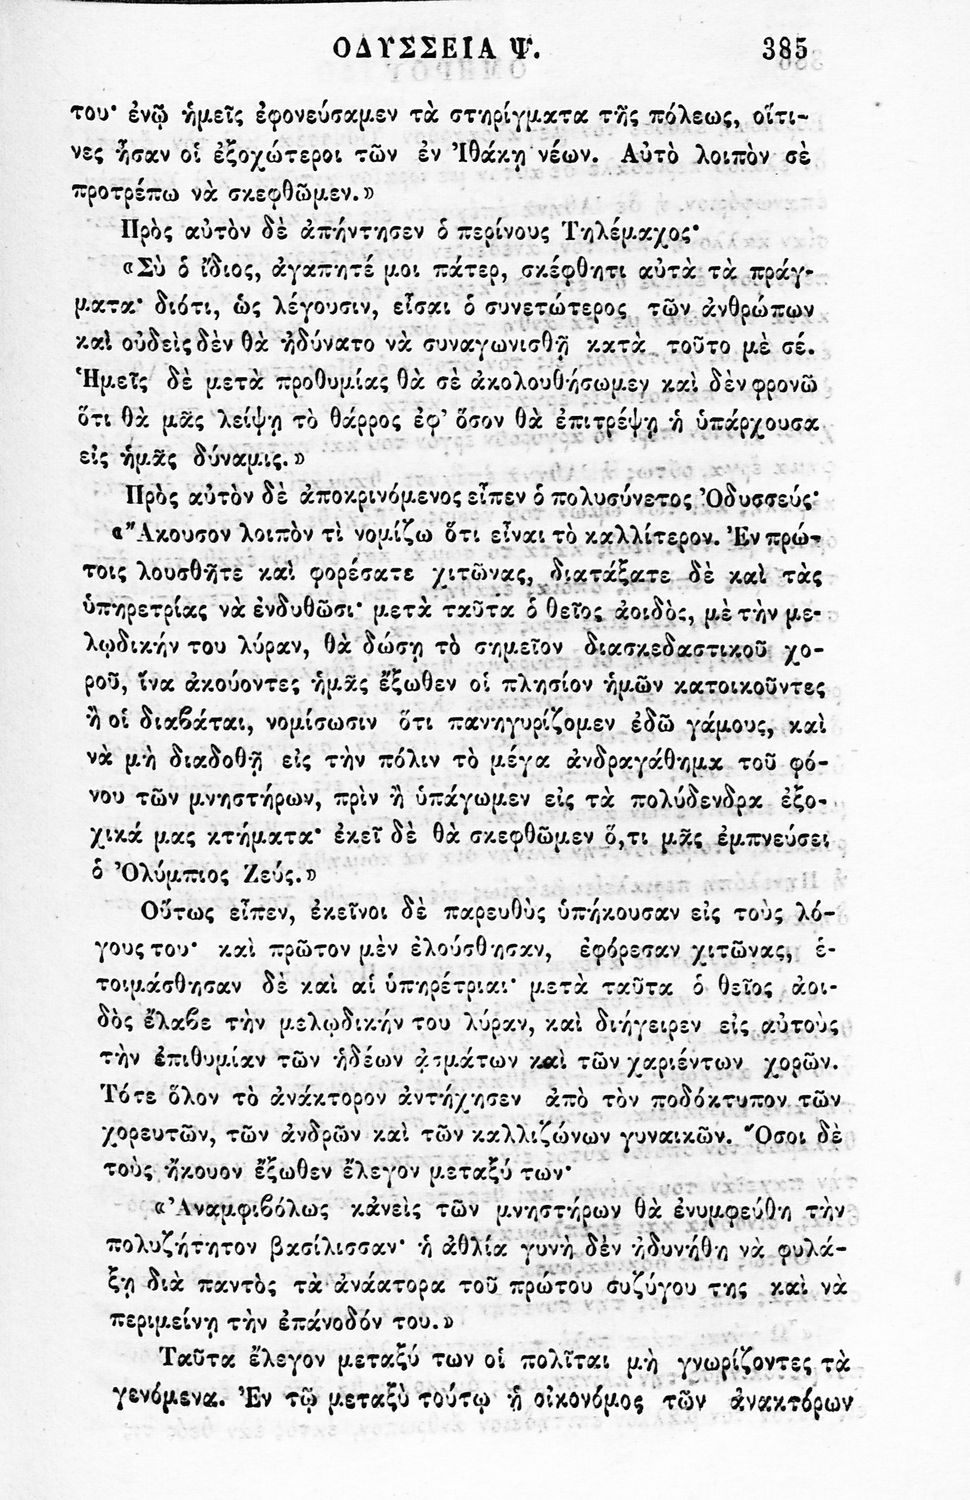 ΟΔΥΣΣΕΙΑ Ψ. 385
του· ἐνῷ ἡμεῖς ἐφονεύσαμεν τὰ στηρίγματα τῆς πόλεως, οἵτι-
νες ἦσαν οἱ ἐξοχώτεροι τῶν ἐν Ἰθάκῃ νέων. Αὐτὸ λοιπὸν σὲ
προτρέπω νὰ σκεφθῶμεν.»
Πρὸς αὐτὸν δὲ ἀπήντησεν ὁ περίνους Τηλέμαχος·
«Σὺ ὁ ἴδιος, ἀγαπητέ μοι πάτερ, σκέφθητι αὐτὰ τὰ πράγ-
ματα· διότι, ὡς λέγουσιν, εἶσαι ὁ συνετώτερος τῶν ἀνθρώπων
καὶ οὐδεὶς δὲν θὰ ἠδύνατο νὰ συναγωνισθῇ κατὰ τοῦτο μὲ σέ.
Ἡμεῖς δὲ μετὰ προθυμίας θὰ σὲ ἀκολουθήσωμεν καὶ δὲν φρονῶ
ὅτι θὰ μᾶς λείψῃ τὸ θάρρος ἐφ’ ὅσον θὰ ἐπιτρέψῃ ἡ ὑπάρχουσα
εἰς ἡμᾶς δύναμις.»
Πρὸς αὐτὸν δὲ ἀποκρινόμενος εἶπεν ὁ πολυσύνετος Ὀδυσσεύς·
«Ἄκουσον λοιπὸν τὶ νομίζω ὅτι εἶναι τὸ καλλίτερον. Ἐν πρώ-
τοις λουσθῆτε καὶ φορέσατε χιτῶνας, διατάξατε δὲ καὶ τὰς
ὑπηρετρίας νὰ ἐνδυθῶσι· μετὰ ταῦτα ὁ θεῖος ἀοιδὸς, μὲ τὴν με-
λῳδικήν του λύραν, θὰ δώσῃ τὸ σημεῖον διασκεδαστικοῦ χο-
ροῦ, ἵνα ἀκούοντες ἡμᾶς ἔξωθεν οἱ πλησίον ἡμῶν κατοικοῦντες
ἢ οἱ διαβάται, νομίσωσιν ὅτι πανηγυρίζομεν ἐδῶ γάμους, καὶ
νὰ μὴ διαδοθῇ εἰς τὴν πόλιν τὸ μέγα ἀνδραγάθημα τοῦ φό-
νου τῶν μνηστήρων, πρὶν ἢ ὑπάγωμεν εἰς τὰ πολύδενδρα ἐξο-
χικά μας κτήματα· ἐκεῖ δὲ θὰ σκεφθῶμεν ὅ,τι μᾶς ἐμπνεύσει
ὁ Ὀλύμπιος Ζεύς.»
Οὕτως εἶπεν, ἐκεῖνοι δὲ παρευθὺς ὑπήκουσαν εἰς τοὺς λό-
γους του· καὶ πρῶτον μὲν ἐλούσθησαν, ἐφόρεσαν χιτῶνας, ἑ-
τοιμάσθησαν δὲ καὶ αἱ ὑπηρέτριαι· μετὰ ταῦτα ὁ θεῖος ἀοι-
δὸς ἔλαβε τὴν μελῳδικήν του λύραν, καὶ διήγειρεν εἰς αὐτοὺς
τὴν ἐπιθυμίαν τῶν ἡδέων ᾀσμάτων καὶ τῶν χαριέντων χορῶν.
Τότε ὅλον τὸ ἀνάκτορον ἀντήχησεν ἀπὸ τὸν ποδόκτυπον τῶν
χορευτῶν, τῶν ἀνδρῶν καὶ τῶν καλλιζώνων γυναικῶν. Ὅσοι δὲ
τοὺς ἤκουον ἔξωθεν ἔλεγον μεταξύ των·
«Ἀναμφιβόλως κἀνεὶς τῶν μνηστήρων θὰ ἐνυμφεύθη τὴν
πολυζήτητον βασίλισσαν· ἡ ἀθλία γυνὴ δὲν ἠδυνήθη νὰ φυλά-
ξῃ διὰ παντὸς τὰ ἀνάατορα τοῦ πρώτου συζύγου της καὶ νὰ
περιμείνῃ τὴν ἐπάνοδόν του.»
Ταῦτα ἔλεγον μεταξύ των οἱ πολῖται μὴ γνωρίζοντες τὰ
γενόμενα. Ἐν τῷ μεταξὺ τούτῳ ἡ οἰκονόμος τῶν ἀνακτόρων